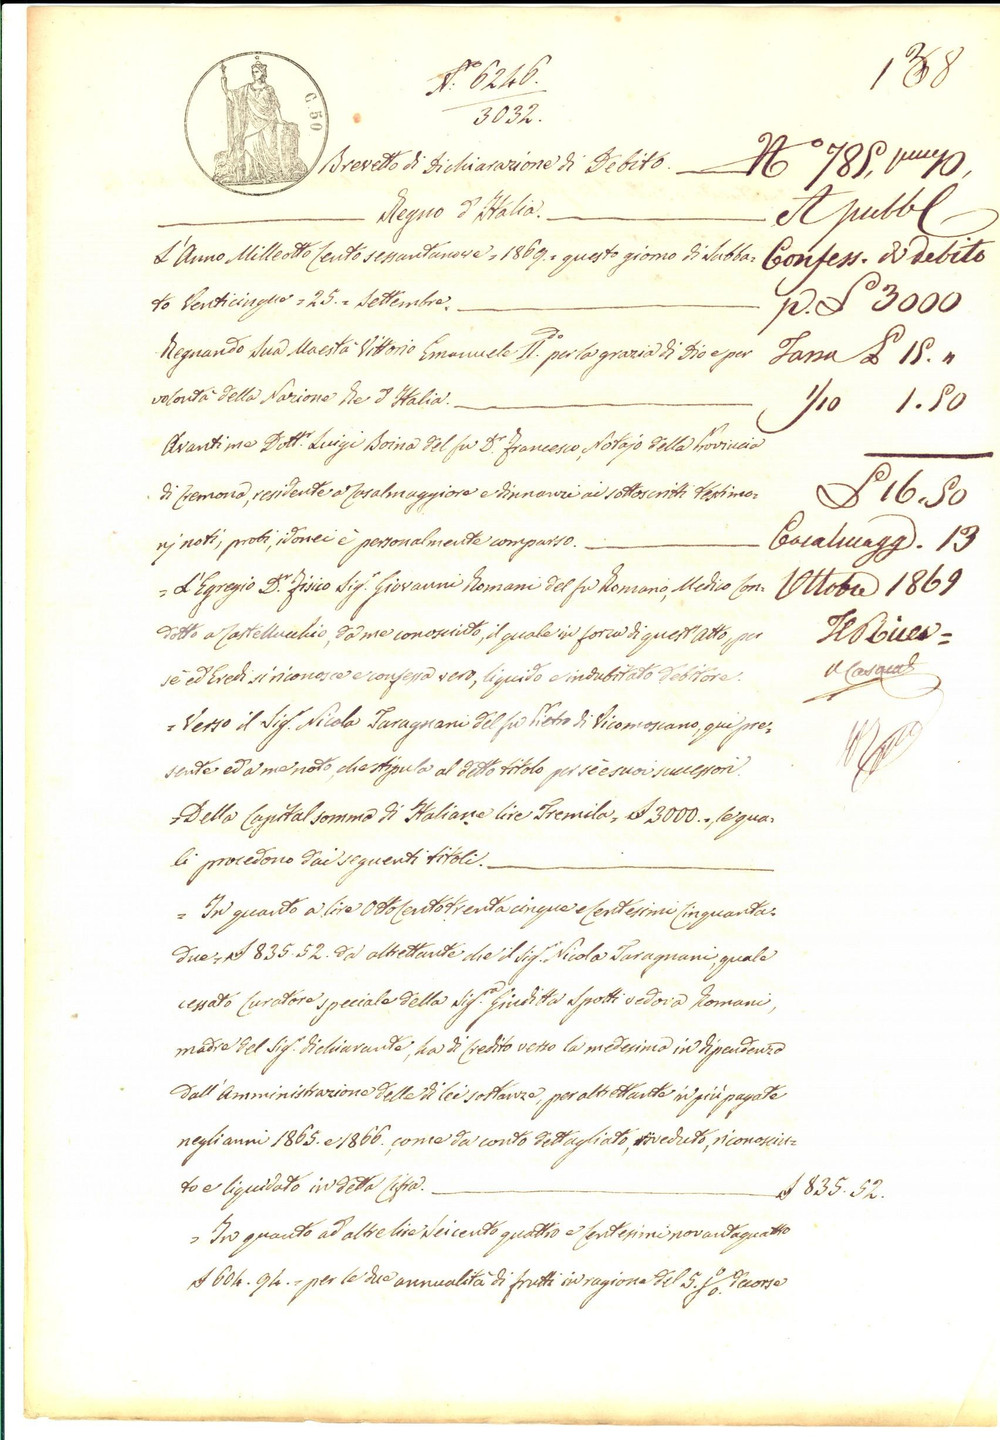 C. 50
N.º 6246.
3032.
1368
Brevetto di Dichiarazione di Debito.
Regno d'Italia.
L'Anno Milleotto Cento sessantanove = 1869. = questo giorno di Sabba=
to Venticinque = 25. = Settembre.
Regnando Sua Maestà Vittorio Emanuele II.do per la grazia di Dio e per
volontà della Nazione Re d'Italia.
Avanti me Dott.r Luigi Boina del fu D.r Francesco, Notajo della Provincia
di Cremona, residente a Casalmaggiore e dinnanzi ai sottoscritti testimo=
nj noti, probi, idonei è personalmente comparso.
= L'Egregio D.r Fisico Sig.r Giovanni Romani del fu Romano, Medico Con=
dotto a Castellucchio, da me conosciuto, il quale in forza di quest'Atto, per
sè ed Eredi si riconosce e confessa vero, liquido e indubitato debitore.
= Verso il Sig.r Nicola Taragnani del fu Pietro di Vicomoscano, qui pre=
sente ed a me noto, che stipula al detto titolo per sè e suoi successori.
= Della Capital somma di Italiane lire Tremila = £ 3000. =, le qua=
li procedono dai seguenti titoli.
= In quanto a lire Ottocentotrentacinque e Centesimi Cinquanta=
due = £ 835.52. da altrettante che il Sig.r Nicola Taragnani, quale
cessato Curatore speciale della Sig.ra Giuditta Spotti vedova Romani,
madre del Sig.r dichiarante, ha di Credito verso la medesima in dipendenza
dall'Amministrazione delle di lei sostanze, per altrettante in più pagate
negli anni 1865. e 1866., come da conto dettagliato, riveduto, riconosciu=
to e liquidato in detta Cifra. £ 835.52.
= In quanto ad altre lire Seicento quattro e Centesimi novantaquattro
£ 604.94. = per le due annualità di frutti in ragione del 5. p.o decorse
N.º 785,
A pubbl
Confess. di debito
p. £ 3000
Tassa £ 15. "
1/10 1.50
£ 16.50
Casalmagg. 13
Ottobre 1869
Il Ricev=